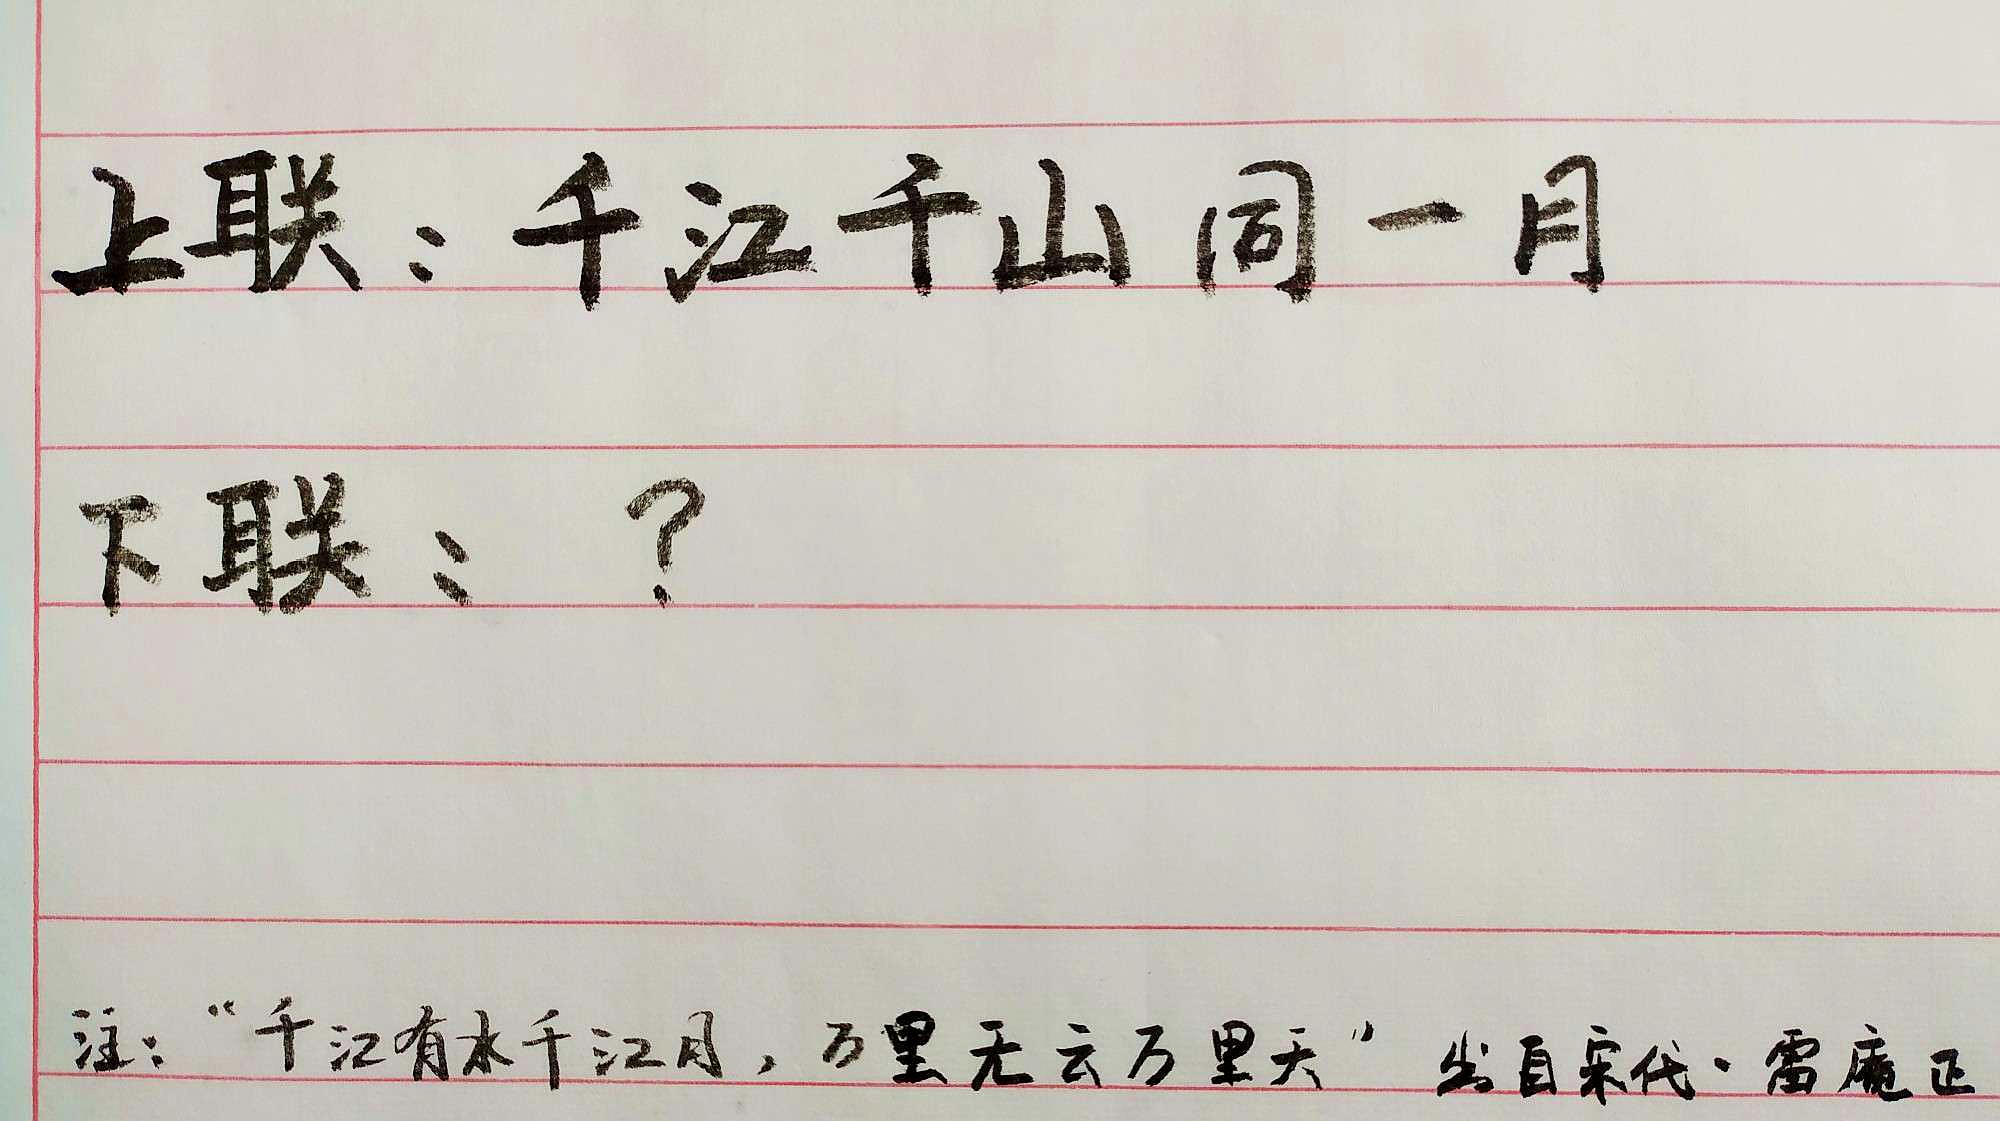 上联：千江千山同一月
下联：？
注：“千江有水千江月，万里无云万里天”出自宋代·雷庵正